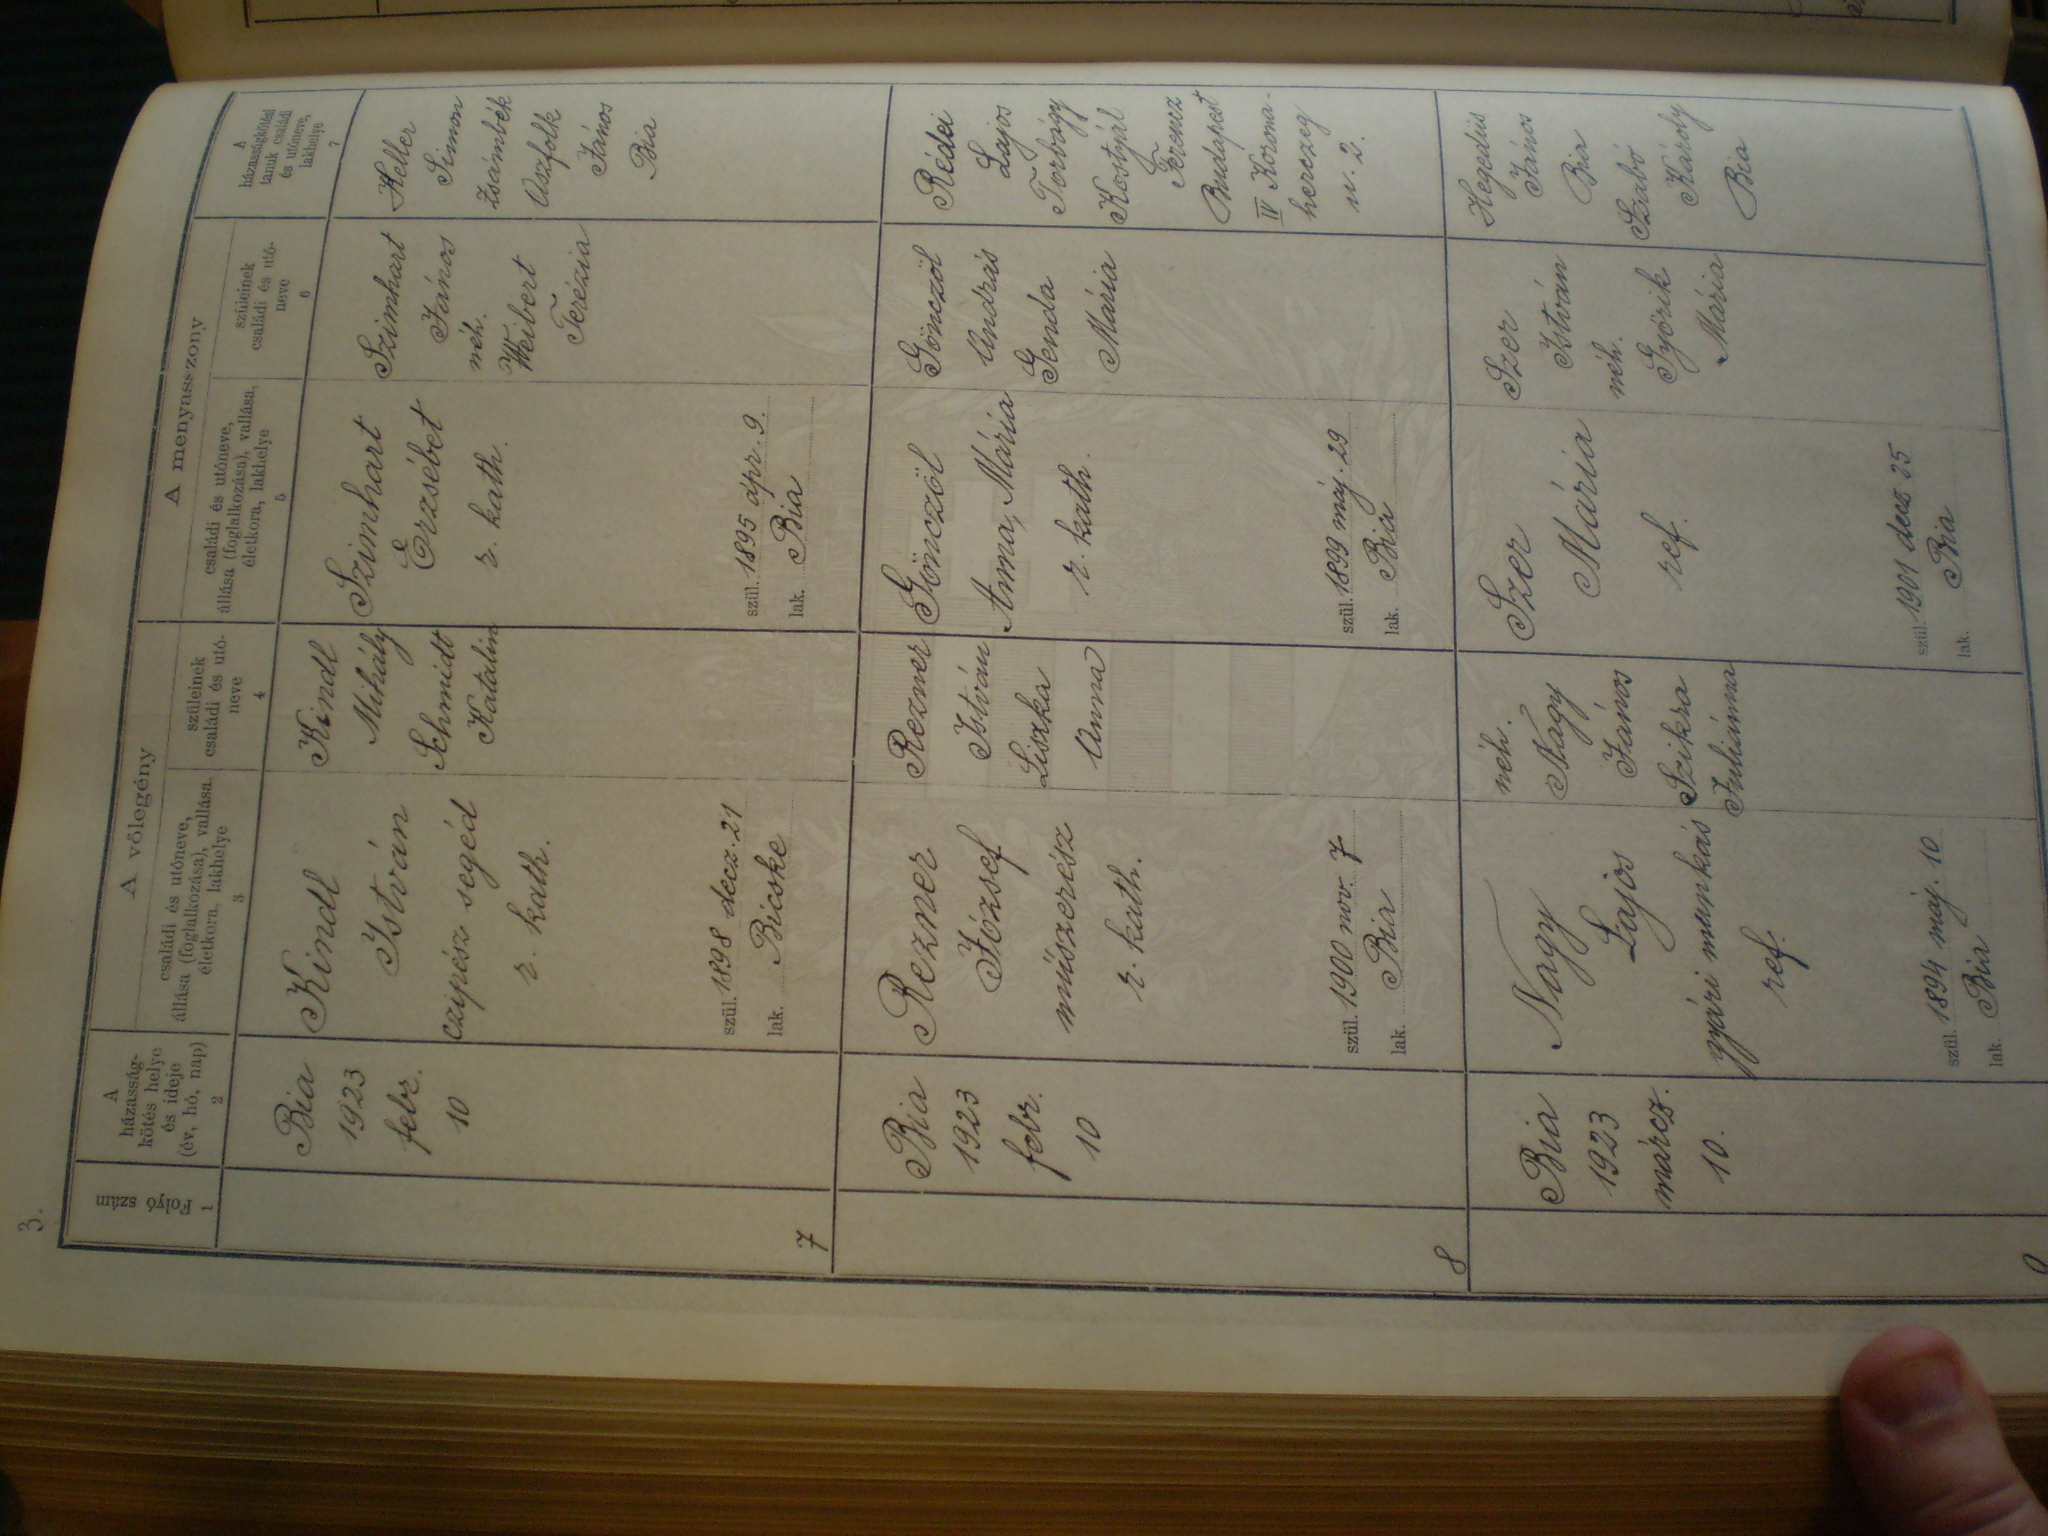 3.
Folyó
szám
1
A
házasság-
kötés helye
és ideje
(év, hó, nap)
2
A vőlegény
családi és utóneve,
állása (foglalkozása), vallása,
életkora, lakhelye
3
szüleinek
családi és utó-
neve
4
A menyasszony
családi és utóneve,
állása (foglalkozása), vallása,
életkora, lakhelye
5
szüleinek
családi és utó-
neve
6
A
házasságkötési
tanuk családi
és utóneve,
lakhelye
7
7
Bia
1923
febr.
10
Kindl
István
czipész segéd
r. kath.
szül. 1898 decz. 21
lak. Bicske
Kindl
Mihály
Schmidt
Katalin
Szimhart
Erzsébet
r. kath.
szül. 1895 ápr. 9.
lak. Bia
Szimhart
János
néh.
Weibert
Terézia
Keller
Simon
Zsámbék
Oszfolk
János
Bia
8
Bia
1923
febr.
10
Rezner
József
műszerész
r. kath.
szül. 1900 nov. 7
lak. Bia
Rezner
István
Liszka
Anna
Gönczöl
Anna, Mária
r. kath.
szül. 1899 máj. 29
lak. Bia
Gönczöl
András
Genda
Mária
Rédei
Lajos
Torbágy
Kostyál
Ferencz
Budapest
IV Korona-
herczeg
u. 2.
9
Bia
1923
márcz.
10.
Nagy
Lajos
gyári munkás
ref.
szül. 1894 máj. 10
lak. Bia
néh.
Nagy
János
Szikra
Juliánna
Szer
Mária
ref.
szül. 1901 decz 25
lak. Bia
Szer
István
néh.
Győrik
Mária
Hegedüs
János
Bia
Szabó
Károly
Bia